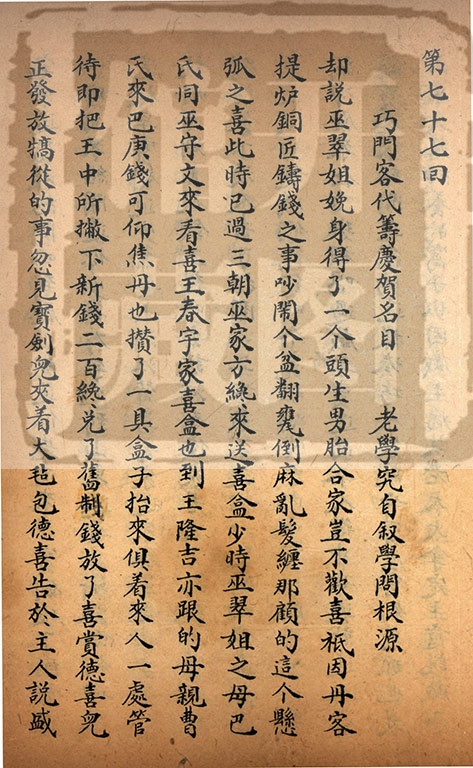 第七十七回
巧門客代籌慶賀名目　老學究自叙學問根源
却説巫翠姐娩身得了一个頭生男胎合家豈不歡喜祇因丹客
提炉銅匠鑄錢之事吵鬧个盆翻甕倒麻亂髮纏那顧的這个懸
弧之喜此時已過三朝巫家方纔來送喜盒少時巫翠姐之母巴
氏同巫守文來看喜王春宇家喜盒也到王隆吉亦跟的母親曹
氏來巴庚錢可仰焦丹也攢了一具盒子抬來俱着來人一處管
待即把王中所撇下新錢二百纔兑了舊制錢放了喜賞德喜兒
正發放犒從的事忽見寶劍兒夾着大毡包德喜告於主人説盛